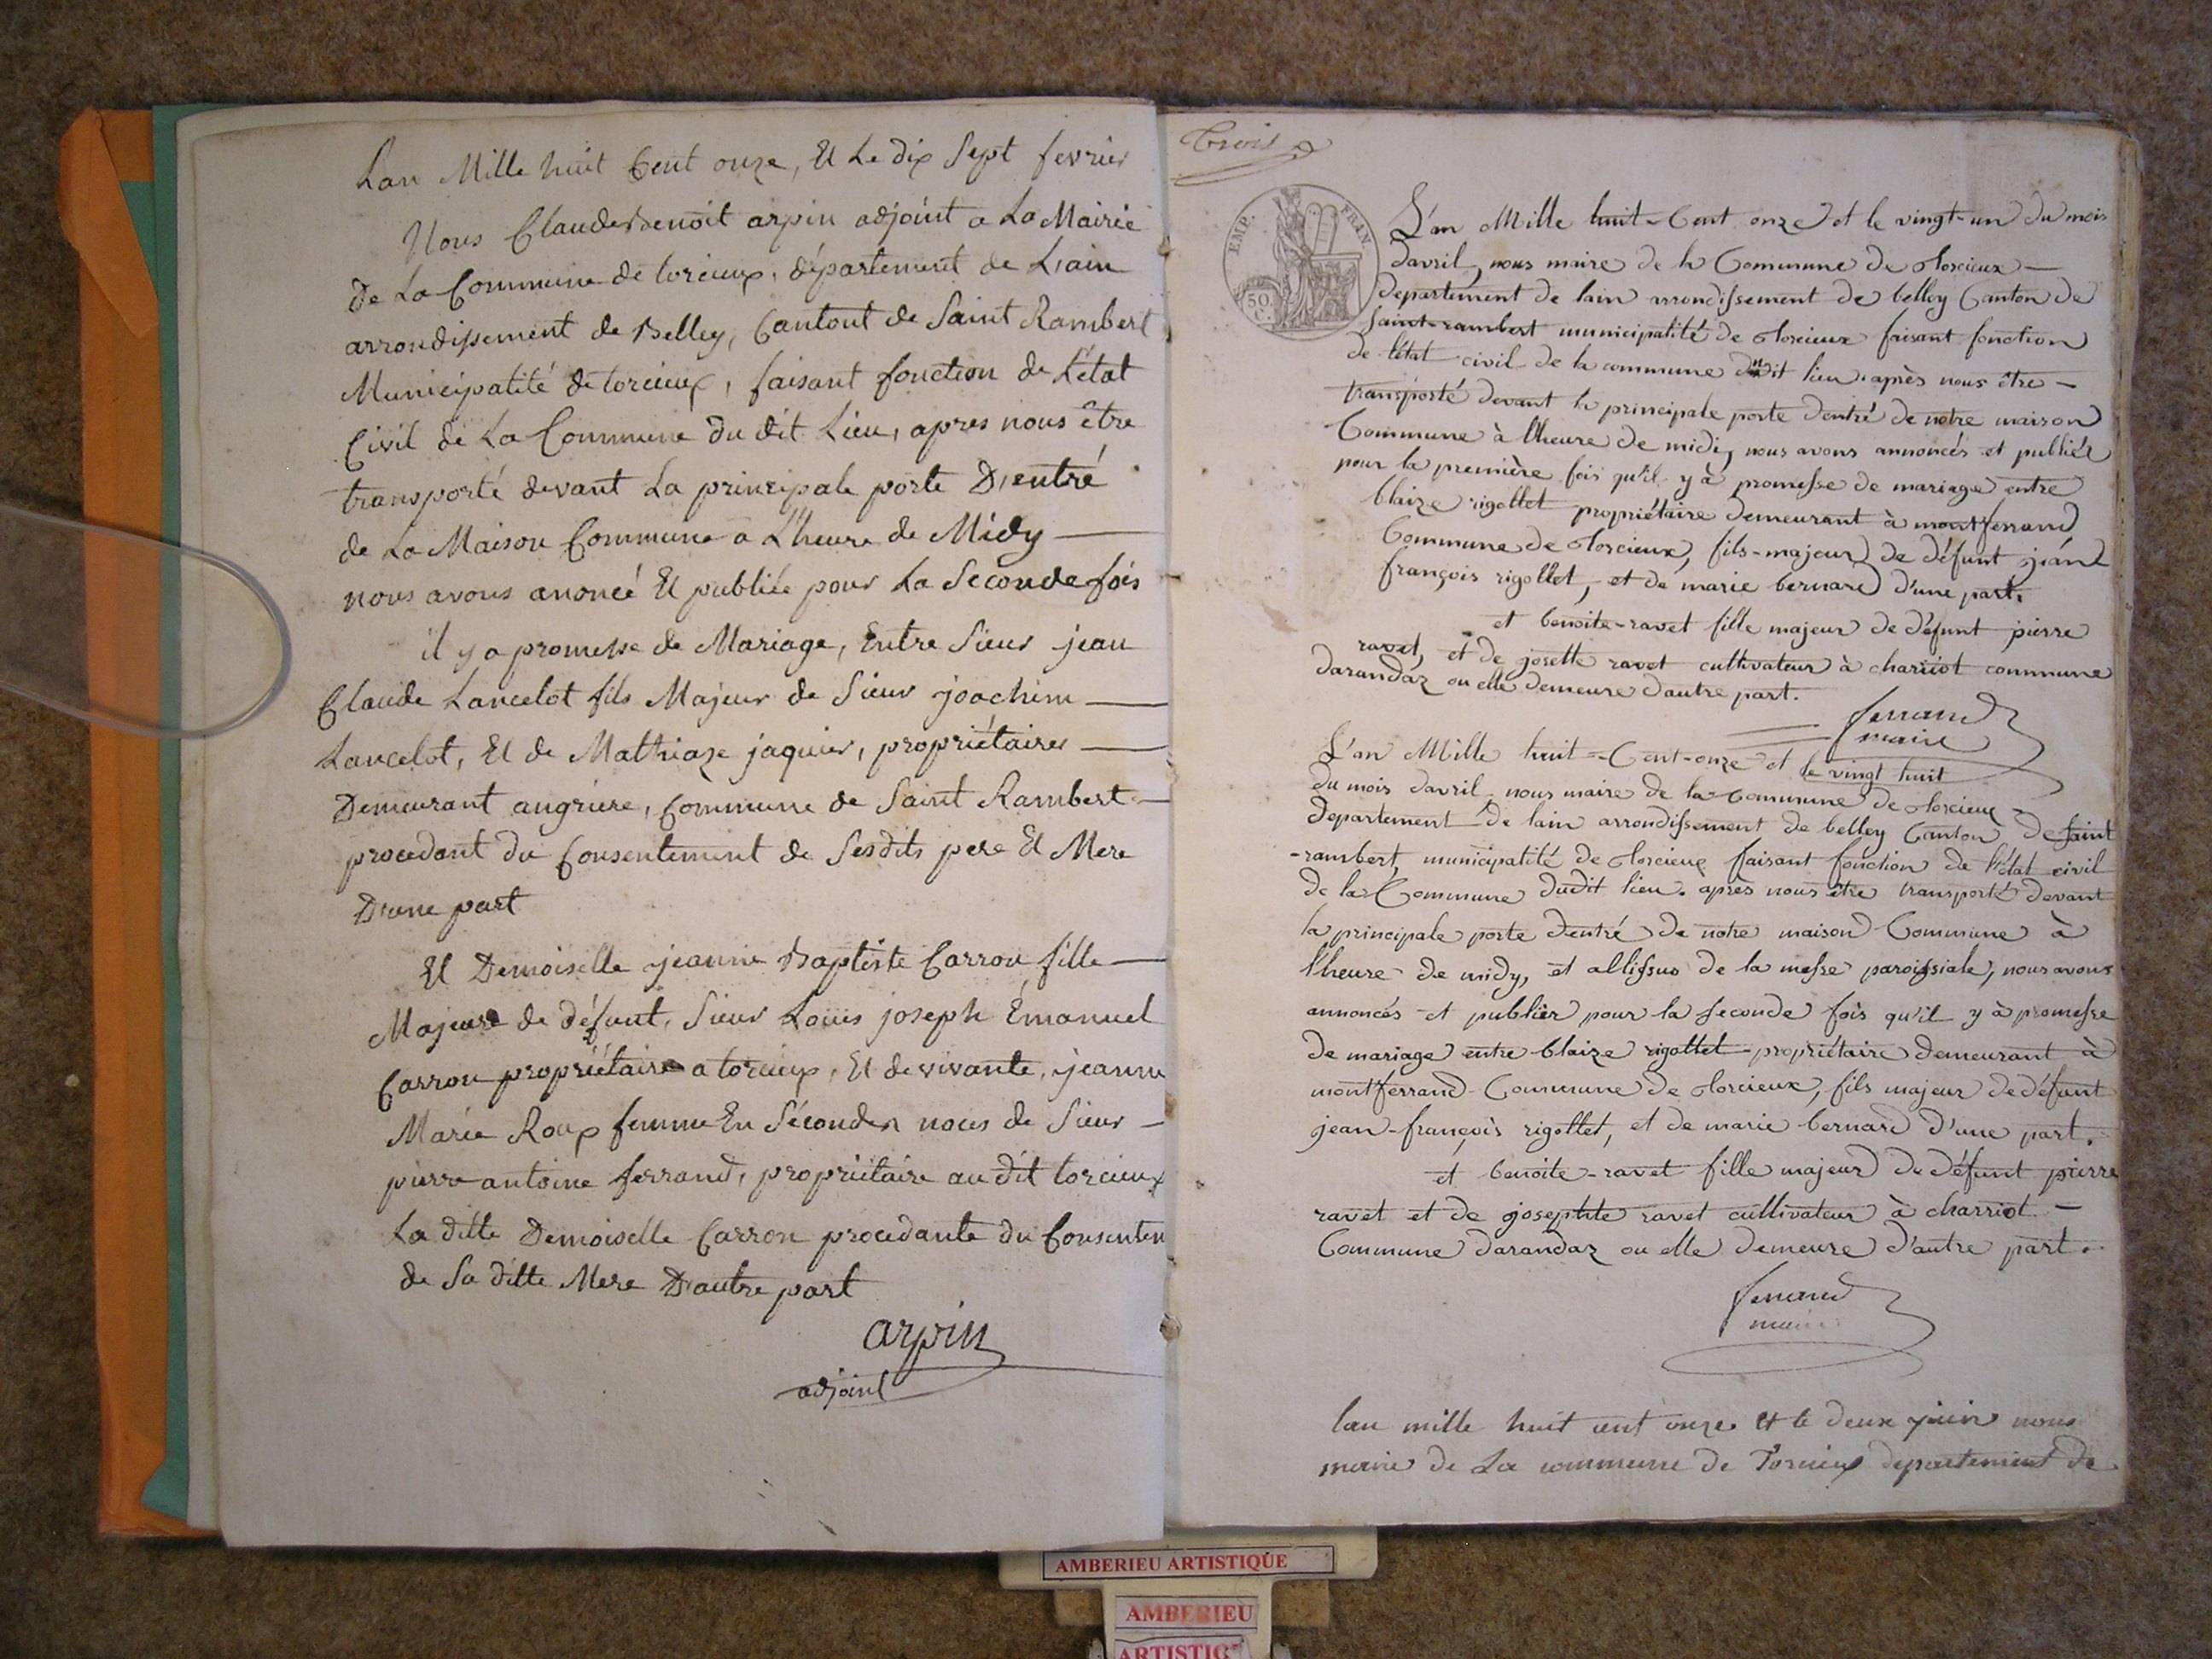 Lan Mille huit Cent onze, Et Le dix Sept fevrier
Nous Claude Benoit arpin adjoint a La Mairie
De La Commune de torcieux, département de L'ain
arrondissement de Belley, Cantont de Saint Rambert
Municipalité de torcieux, faisant fonction de L'état
Civil de La Commune du dit Lieu, apres nous être
transporté devant La principale porte D'entré
de La Maison Commune a L'heure de Midy —
nous avons anoncé Et publiée pour La Seconde fois
il y a promesse de Mariage, Entre Sieur jean
Claude Lancelot fils Majeur de Sieur joachim —
Lancelot, Et de Mathiaze jaquier, propriétaires —
Demeurant angriere, Commune de Saint Rambert —
procedant du Consentement de Sesdits pere Et Mere
D'une part
Et Demoiselle jeanne Baptiste Carron fille —
Majeure de défunt, Sieur Louis joseph Emanuel
Carron propriétaire a torcieux, Et de vivante, jeanne
Marie Roux femme En Séconder noces de Sieur —
pierre antoine ferrand, propriétaire au dit torcieux
La ditte Demoiselle Carron procedante du Consentem
de Sa ditte Mere D'autre part
arpin
adjoint
Trois
EMP. FRAN.
50
C.
L'an Mille huit-Cent onze et le vingt-un du mois
davril, nous maire de la Commune de torcieux —
departement de lain arrondissement de belley Canton de
saint-rambert municipalité de torcieux faisant fonction
de l'état civil de la commune dudit lieu. après nous être —
transporté devant la principale porte dentré de notre maison
Commune à lheure de midi, nous avons annoncés et publiér
pour la première fois qu'il y à promesse de mariage entre
blaize rigollet propriétaire demeurant à montferrand
Commune de torcieux, fils-majeur de défunt jéan
françois rigollet, et de marie bernard d'une part.
et benoite-ravet fille majeur de défunt pierre
ravet, et de josette ravet cultivateur à charriot commune
darandaz ou elle demeure dautre part.
ferrand
maire
L'an Mille huit-Cent-onze et le vingt huit
du mois davril nous maire de la Commune de torcieux
Departement de lain arrondissement de belley Canton de saint
-rambert, municipalité de torcieux faisant fonction de l'état civil
de la Commune dudit lieu. après nous être transporté devant
la principale porte dentré de notre maison Commune à
lheure de midy, et allissue de la messe paroissiale, nous avons
annoncés et publier pour la seconde fois qu'il y à promesse
de mariage entre blaize rigollet propriétaire demeurant à
montferrand Commune de torcieux, fils majeur de défunt
jean-françois rigollet, et de marie bernard d'une part.
et benoite-ravet fille majeur de défunt pierre
ravet et de josephte ravet cultivateur à charriot —
Commune darandaz ou elle demeure d'autre part.
ferrand
maire
lan mille huit cent onze et le deux juin nous
maire de La commune de Torcieux departement de
AMBERIEU ARTISTIQUE
AMBERIEU
ARTISTIQ